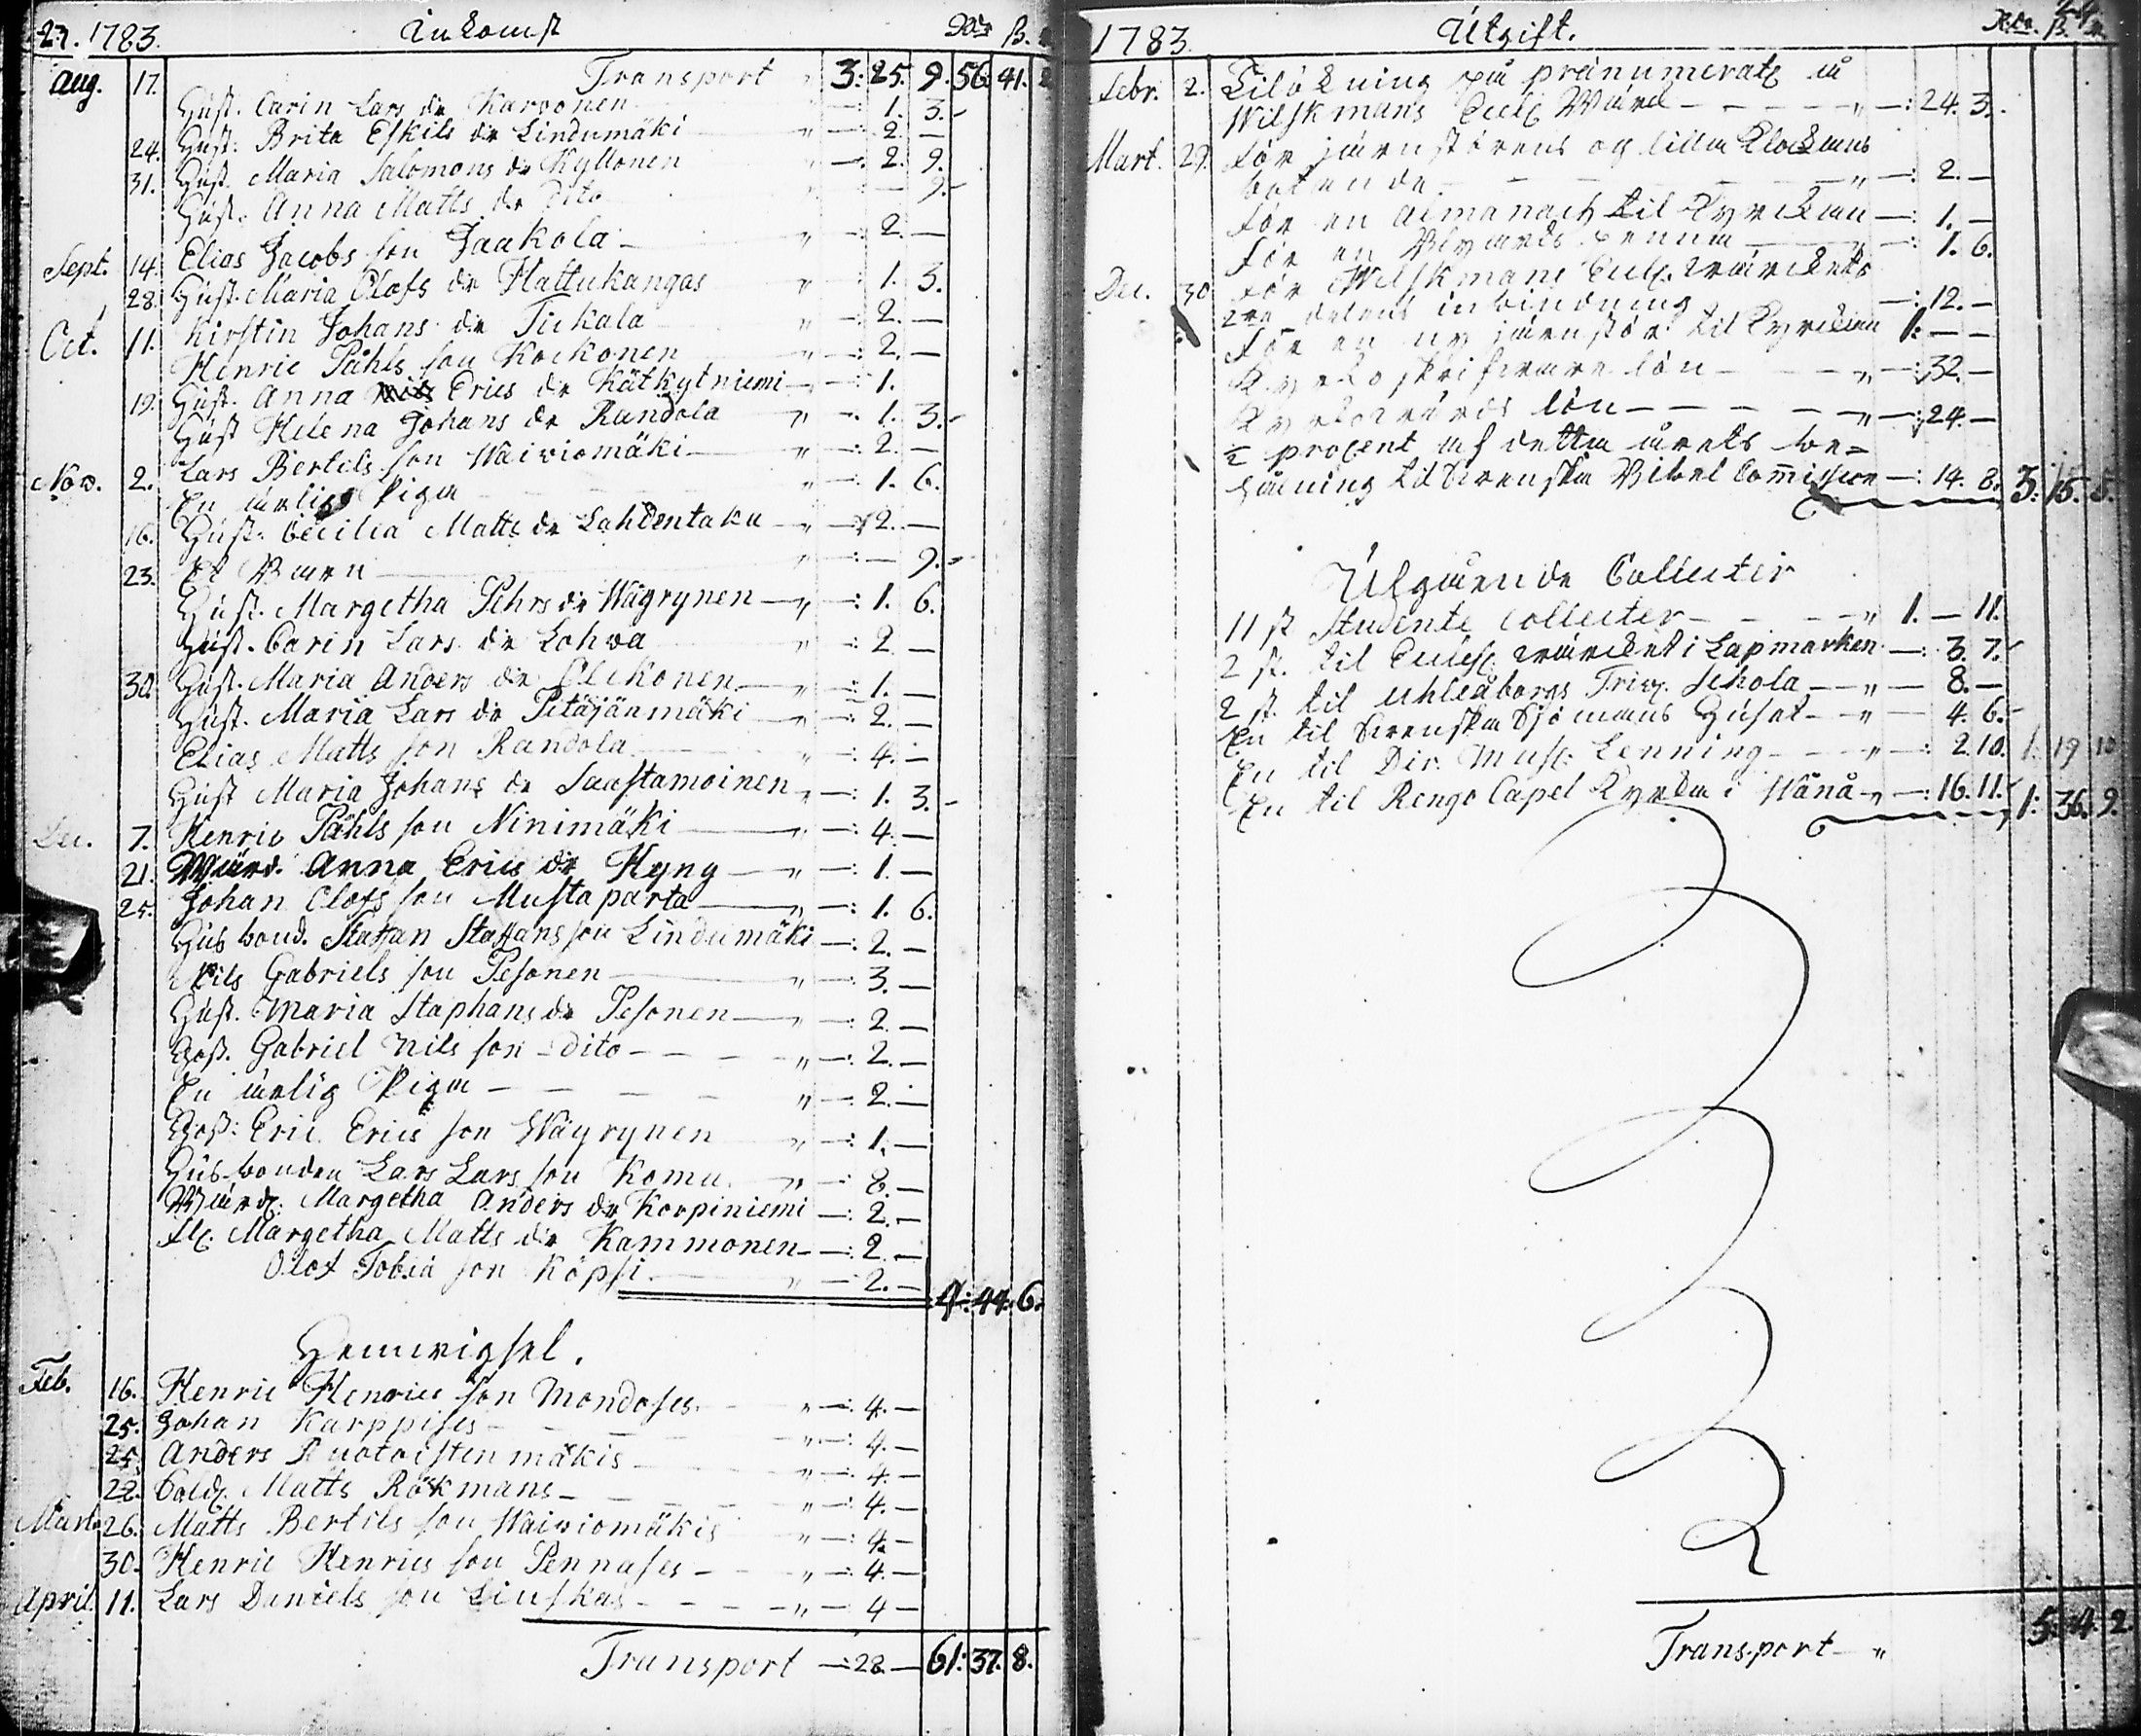 27. 1783. Inkomst Rdr ß.
Aug. 17. Transport " 3: 25. 9. 56: 41. 2
Hust. Carin Lars dr Karvonen —: 1. 3.
24. Hust. Brita Eskils dr Lindumäki " —: 2. —
31. Hust. Maria Salomons dr Kyllönen " —: 2. 9.
Hust. Anna Matts dr Dito " — 9.
Sept. 14. Elias Jacobs son Jaakola " —: 2. —
28. Hust. Maria Olofs dr Hattukangas " —: 1. 3.
Oct. 11. Kirstin Johans dr Tickala —: 2. —
Henric Påhls son Kockonen " —: 2. —
19. Hust. Anna Erics dr Kätkytniemi " —: 1.
Hust Helena Johans dr Randola " —: 1. 3.
Lars Bertils son Waiviomäki " —: 2. —
Nov. 2. En ärlig Piga " —: 1. 6.
16. Hust. Cecilia Matts dr Lahdentaka " —: 2. —
23. Et Barn " —: — 9.
Hust. Margetha Pehrs dr Wäyrynen " —: 1. 6.
Hust. Carin Lars dr Lohva " —: 2. —
30. Hust. Maria Anders dr Olckonen " —: 1. —
Hust. Maria Lars dr Petäjänmäki " —: 2. —
Elias Matts son Randola " —: 4. —
Hust Maria Johans dr Saastamoinen " —: 1. 3. —
Dec. 7. Henric Påhls son Ninimäki " —: 4. —
21. Wärd. Anna Erics dr Hyng " —: 1. —
25. Johan Olofs son Mustaparta " —: 1. 6.
Husbond. Staffan Staffans son Lindumäki —: 2. —
Nils Gabriels son Pesonen " —: 3. —
Hust. Maria Staphans dr Pesonen " —: 2. —
Goß. Gabriel Nils son dito " —: 2. —
En ärlig Piga " —: 2. —
Goß: Eric Erics son Wäyrynen " —: 1. —
Husbonden Lars Lars son Komu " —: 8. —
Wärd. Margetha Anders dr Korpiniemi —: 2. —
Margetha Matts dr Kammonen —: 2. —
Olof Tobia son Köpsi " —: 2. — 4: 44: 6.
Hemvigsel.
Feb. 16. Henric Henrics son Mondoses " —: 4. —
25. Johan Karppises " —: 4. —
25. Anders Ruotoistenmäkis " —: 4. —
22. Sold. Matts Rökmans " —: 4. —
Mart. 26. Matts Bertils son Waiviomäkis " —: 4. —
30. Henric Henrics son Pennases " —: 4. —
April 11. Lars Daniels son Linskas " —: 4 —
Transport —: 28. — 61: 37. 8.
1783. Utgift. Rdr. ß.
Febr. 2. Tilökning på pränumerat. å
Wilskmans Eccl. Wärck " —: 24. 3.
Mart. 29. För järnstörens og lilla Klockans
botande " —: 2. —
För en almanach til Kyrckan —: 1. —
För en Blyerts penna " —: 1. 6.
Dec. 30 För Wilskmans Eccl. wärckets
2ra delens inbindning —: 12. —
För en ny järnstör til Kyrckan 1: — —
Kyrkoskrifvare lön " —: 32. —
Kyrkovärds lön " —: 24. —
½ procent af detta årets be=
hållning til Svenska Bibel Commission —: 14. 8. 3: 15. 5.
Utgående Collecter
11 st Studente Collecter " 1. — 11.
2 st. til Eccles. wärcket i Lapmarken —: 3. 7.
2 st. til Uhleåborgs Triv. Schola " — 8. —
En til Svenska Sjömans Huset " — 4. 6.
En til Dir. Mus. Lenning " —: 2. 10. 1: 19 10
En til Rengo Capel Kyrka i Wånå " —: 16. 11. 1: 36. 9.
Transport " 5: 4. 2.